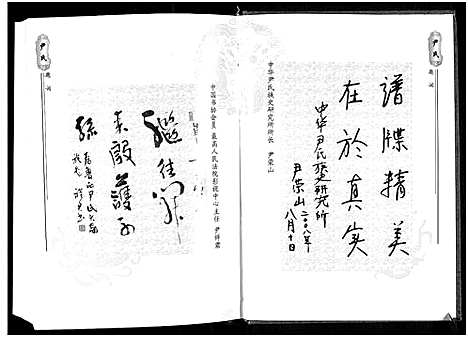 尹氏
题词
中华尹氏族史研究所所长 尹荣山
谱牒精美
在於真实
中华尹氏族史研究所
尹荣山二00八年
八月十日
尹氏
题词
中国书协会员 最高人民法院影视中心主任 尹祥霖
继往开
来启护子
孙